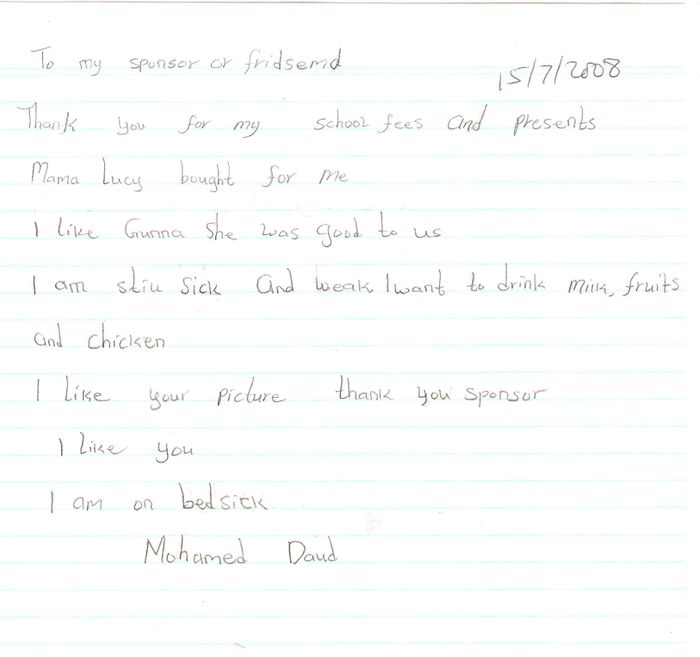 To my sponsor or fridsemd
15/7/2008
Thank you for my school fees and presents
Mama Lucy bought for me
I like Gunna she was good to us
I am stiu sick and weak I want to drink miik, fruits
and chicken
I Like your picture thank you sponsor
I like you
I am on bedsick
Mohamed Daud